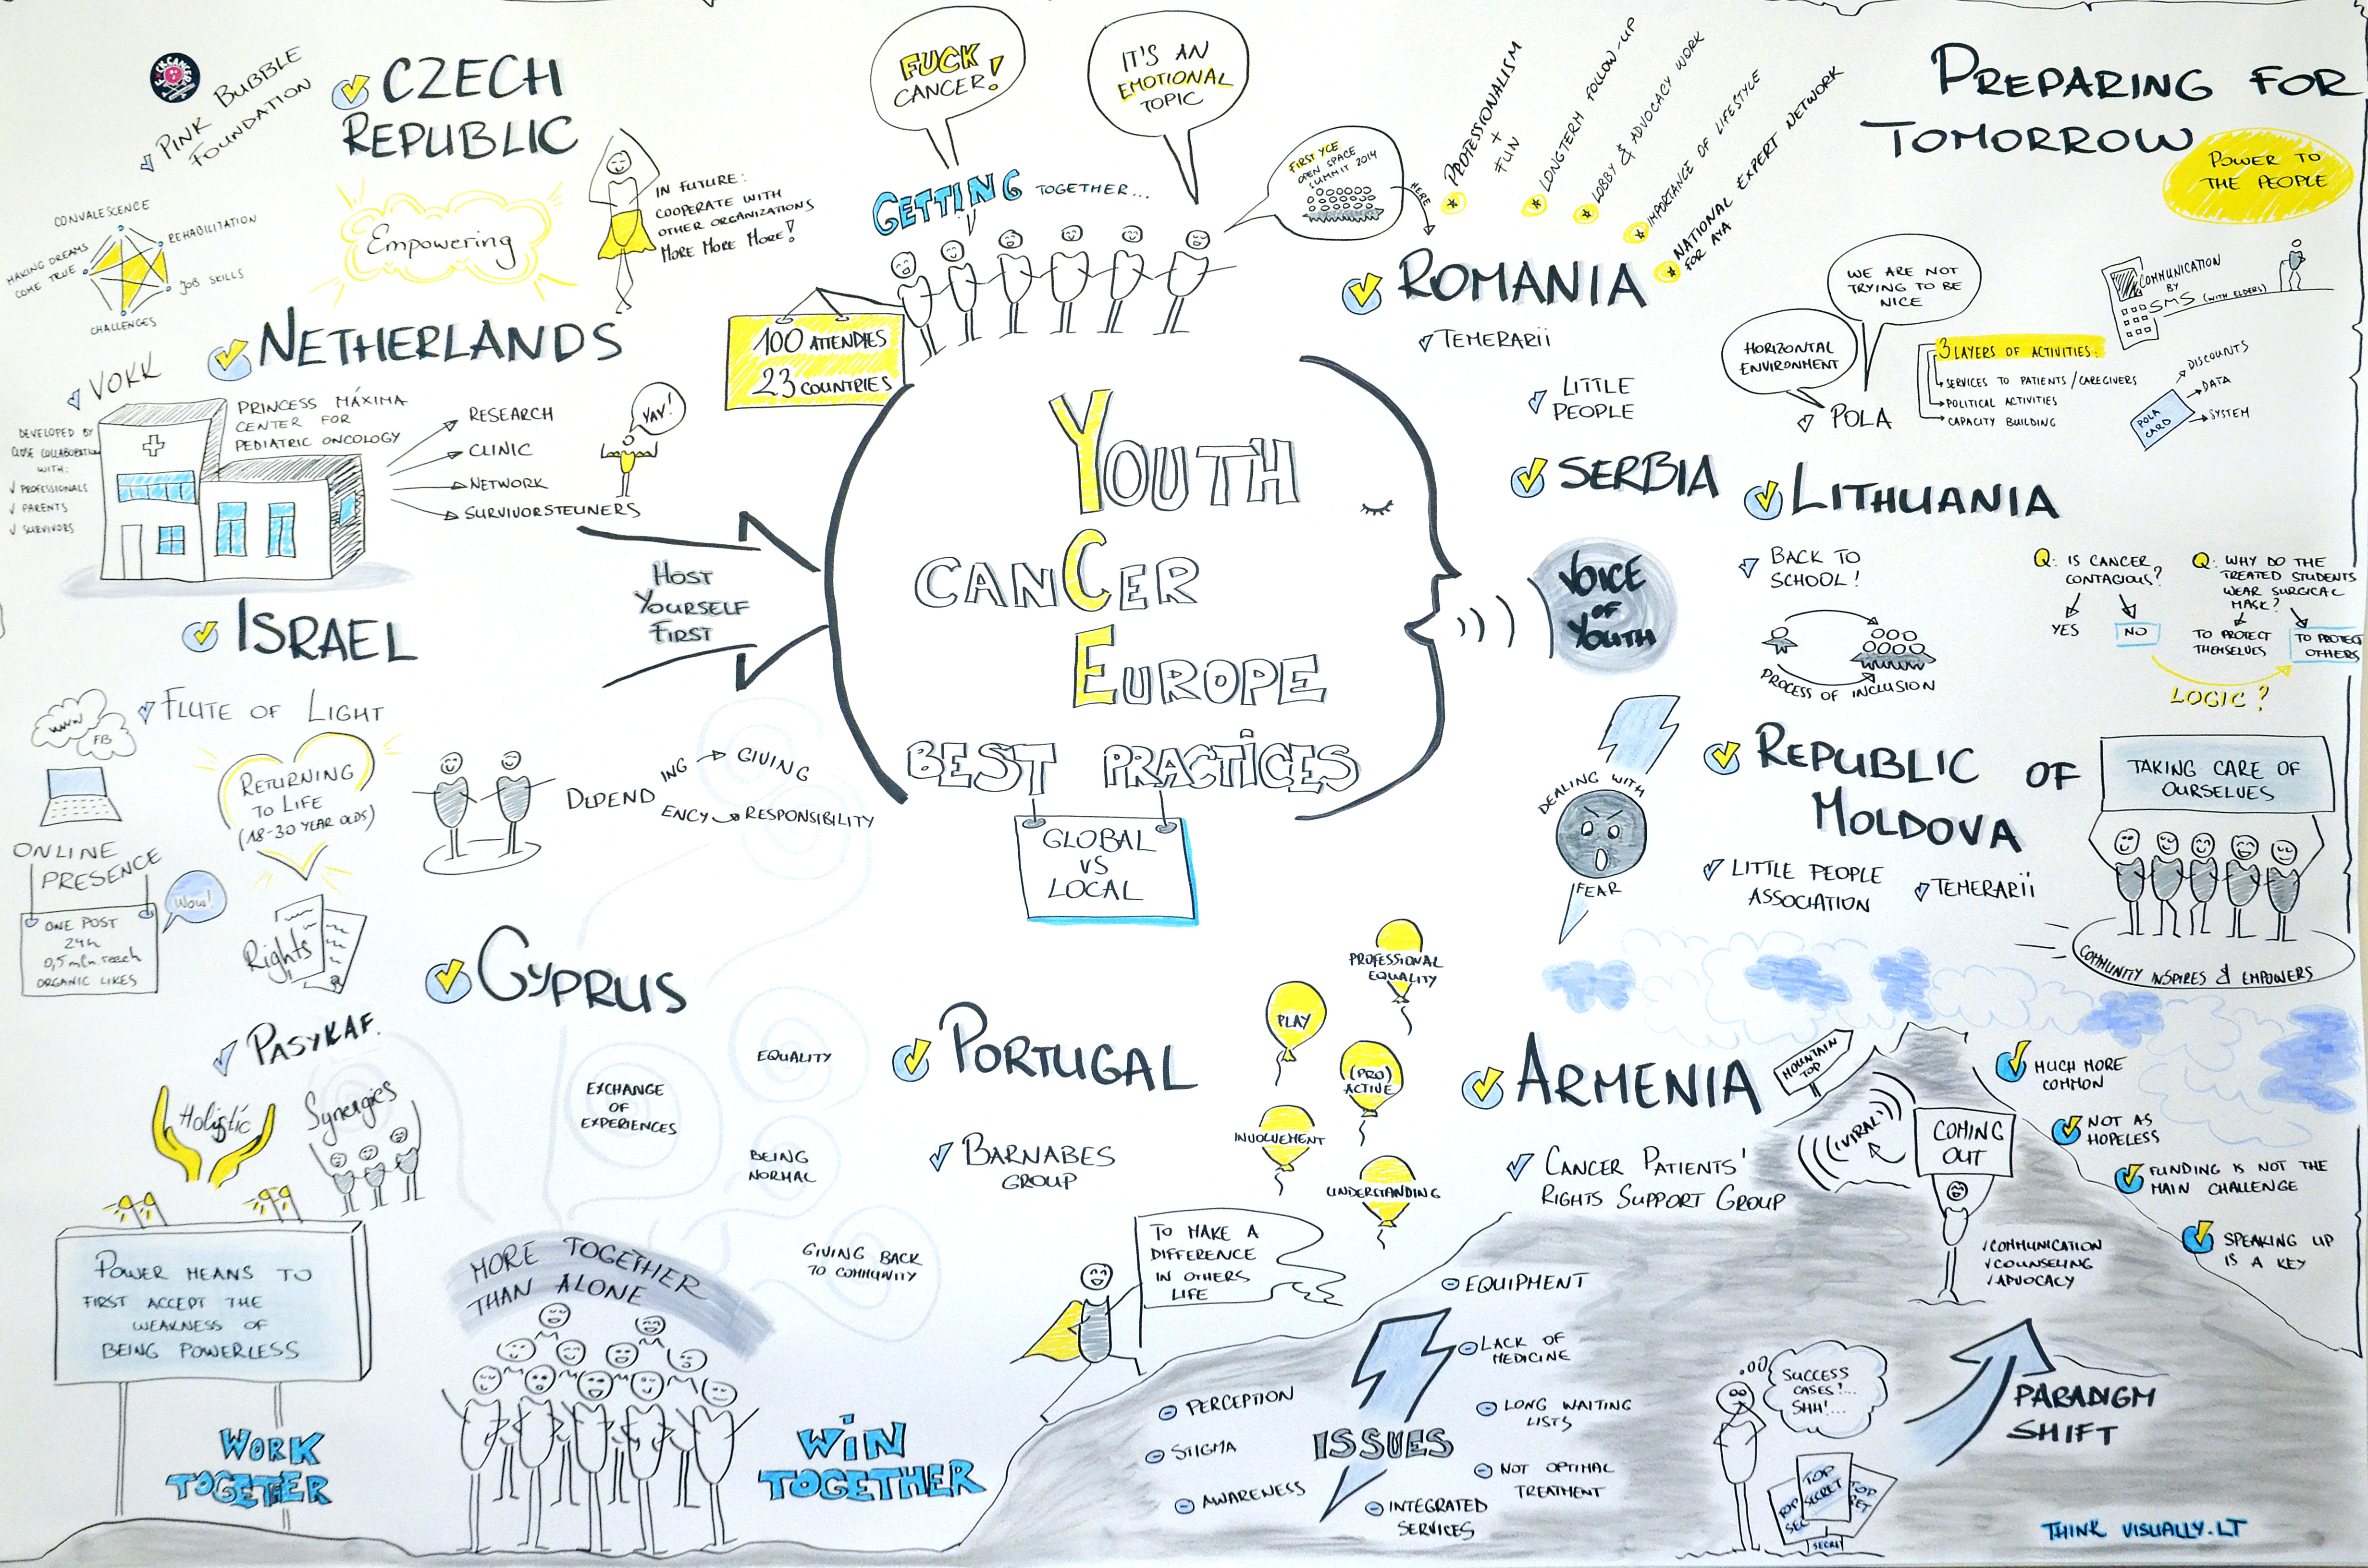 PINK BUBBLE
FOUNDATION
CZECH
REPUBLIC
Empowering
IN FUTURE:
COOPERATE WITH
OTHER ORGANIZATIONS
MORE MORE MORE!
CONVALESCENCE
REHABILITATION
JOB SKILLS
CHALLENGES
MAKING DREAMS
COME TRUE
FUCK
CANCER!
IT'S AN
EMOTIONAL
TOPIC
GETTING TOGETHER...
FIRST YCE
OPEN SPACE
SUMMIT 2014
HERE
100 ATTENDIES
23 COUNTRIES
PROFESSIONALISM
+
FUN
LONGTERM FOLLOW-UP
LOBBY & ADVOCACY WORK
IMPORTANCE OF LIFESTYLE
NATIONAL EXPERT NETWORK
FOR AYA
ROMANIA
TEMERARII
LITTLE
PEOPLE
PREPARING FOR
TOMORROW
POWER TO
THE PEOPLE
WE ARE NOT
TRYING TO BE
NICE
HORIZONTAL
ENVIRONMENT
POLA
3 LAYERS OF ACTIVITIES:
SERVICES TO PATIENTS/CAREGIVERS
POLITICAL ACTIVITIES
CAPACITY BUILDING
COMMUNICATION
BY
SMS (WITH ELDERS)
POLA
CARD
DISCOUNTS
DATA
SYSTEM
NETHERLANDS
VOKK
DEVELOPED BY
CLOSE COLLABORATION
WITH:
√ PROFESSIONALS
√ PARENTS
√ SURVIVORS
PRINCESS MÁXIMA
CENTER FOR
PEDIATRIC ONCOLOGY
RESEARCH
CLINIC
NETWORK
SURVIVORSTEUNERS
YAY!
HOST
YOURSELF
FIRST
YOUTH
CANCER
EUROPE
BEST PRACTICES
GLOBAL
VS
LOCAL
VOICE
OF
YOUTH
SERBIA
DEALING WITH
FEAR
LITHUANIA
BACK TO
SCHOOL!
PROCESS OF INCLUSION
Q: IS CANCER
CONTAGIOUS?
YES
NO
Q: WHY DO THE
TREATED STUDENTS
WEAR SURGICAL
MASK?
TO PROTECT
THEMSELVES
TO PROTECT
OTHERS
LOGIC?
REPUBLIC OF
MOLDOVA
LITTLE PEOPLE
ASSOCIATION
TEMERARII
TAKING CARE OF
OURSELVES
COMMUNITY INSPIRES & EMPOWERS
ISRAEL
FLUTE OF LIGHT
WWW
FB
ONLINE
PRESENCE
ONE POST
24h
0,5 mln. reach
ORGANIC LIKES
Wow!
RETURNING
TO LIFE
(18-30 YEAR OLDS)
Rights
DEPEND
ING → GIVING
ENCY → RESPONSIBILITY
CYPRUS
PASYKAF.
Holistic
Synergies
POWER MEANS TO
FIRST ACCEPT THE
WEAKNESS OF
BEING POWERLESS
WORK
TOGETHER
MORE TOGETHER
THAN ALONE
WIN
TOGETHER
EQUALITY
EXCHANGE
OF
EXPERIENCES
BEING
NORMAL
GIVING BACK
TO COMMUNITY
PORTUGAL
BARNABES
GROUP
PROFESSIONAL
EQUALITY
PLAY
(PRO)
ACTIVE
INVOLVEMENT
UNDERSTANDING
TO MAKE A
DIFFERENCE
IN OTHERS
LIFE
ARMENIA
CANCER PATIENTS'
RIGHTS SUPPORT GROUP
MOUNTAIN
TOP
VIRAL
COMING
OUT
√ COMMUNICATION
√ COUNSELING
√ ADVOCACY
MUCH MORE
COMMON
NOT AS
HOPELESS
FUNDING IS NOT THE
MAIN CHALLENGE
SPEAKING UP
IS A KEY
ISSUES
PERCEPTION
STIGMA
AWARENESS
EQUIPMENT
LACK OF
MEDICINE
LONG WAITING
LISTS
NOT OPTIMAL
TREATMENT
INTEGRATED
SERVICES
SUCCESS
CASES!...
SHH!...
TOP
SECRET
SECRET
PARADIGM
SHIFT
THINK VISUALLY.LT